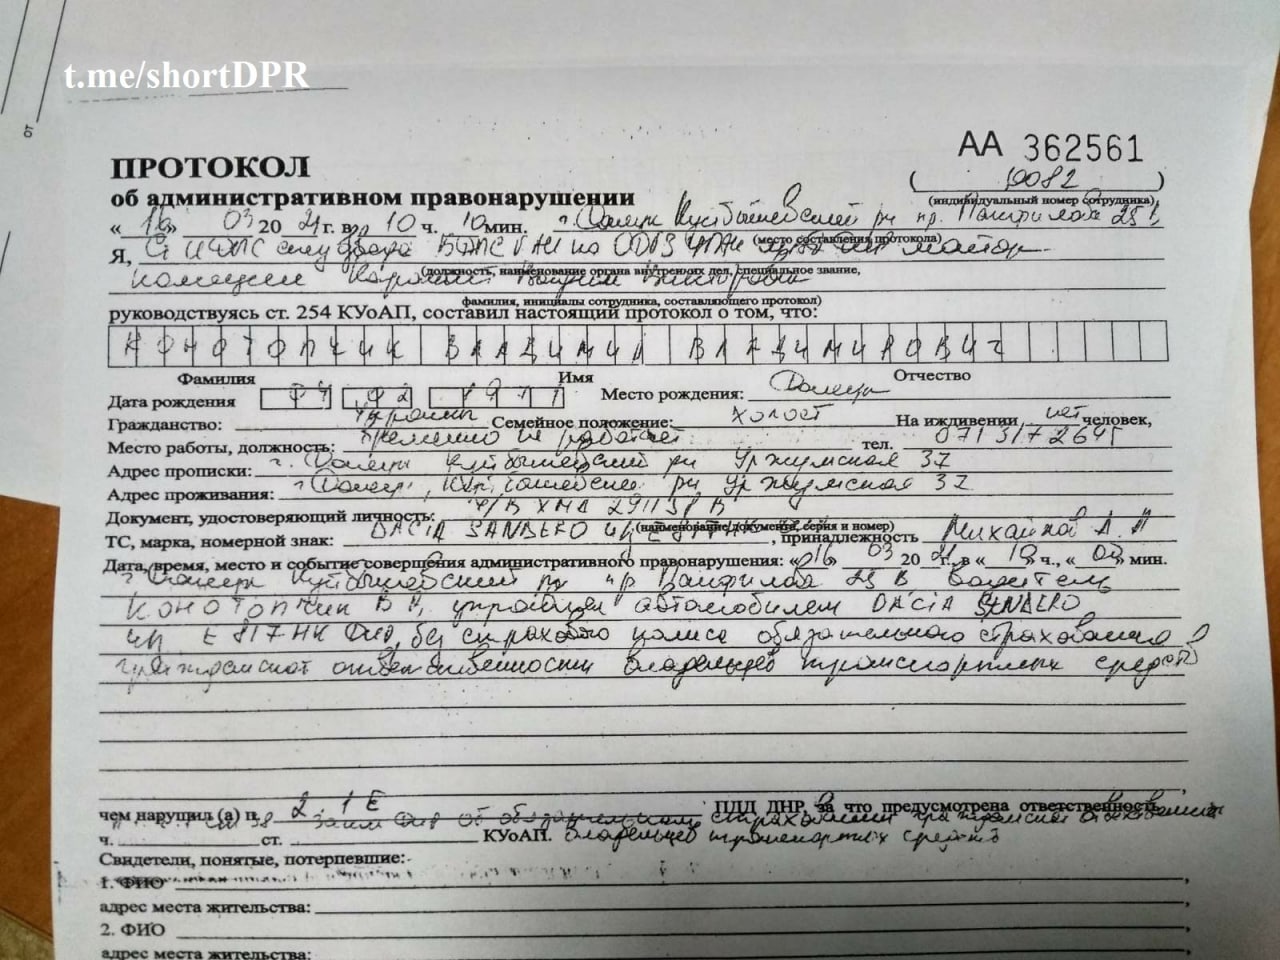 t.me/shortDPR
от
АА 362561
ПРОТОКОЛ
( 0082 )
об административном правонарушении
(индивидуальный номер сотрудника)
« 16 » 03 20 21 г. в 10 ч. 10 мин. г. Донецк Куйбышевский рн пр. Панфилова
(место составления протокола)
Я, Ст ИДПС
(должность, наименование органа внутренних дел, специальное звание,
фамилия, инициалы сотрудника, составляющего протокол)
руководствуясь ст. 254 КУоАП, составил настоящий протокол о том, что:
КОНОТОПЧИК ВЛАДИМИР ВЛАДИМИРОВИЧ
Фамилия Имя Отчество
Дата рождения 04 02 1971 Место рождения: Донецк
Гражданство: Украины Семейное положение: холост На иждивении нет человек,
Место работы, должность: временно не работает тел. 071 317 2645
Адрес прописки: г. Донецк Куйбышевский рн Уржумская 37
Адрес проживания: г. Донецк, Куйбышевский рн Уржумская 37
Документ, удостоверяющий личность: В/В ХМА 291138 В
(наименование документа, серия и номер)
ТС, марка, номерной знак: DACIA SANDERO , принадлежность Михайлов А.
Дата, время, место и событие совершения административного правонарушения: « 16 » 03 20 21 г., в « 10 » ч., « 04 » мин.
г. Донецк Куйбышевский рн пр Панфилова 25 В водитель
Конотопчик В В, управлял автомобилем DACIA SANDERO
Е 817 НК без страхового полиса обязательного страхования
гражданской ответственности владельцев транспортных средств
чем нарушил (а) п. 2 1 Е ПДД ДНР, за что предусмотрена ответственность
об обязательном страховании гражданской ответственности
ч. ст. КУоАП. владельцев транспортных средств
Свидетели, понятые, потерпевшие:
1. ФИО
адрес места жительства:
2. ФИО
адрес места жительства: